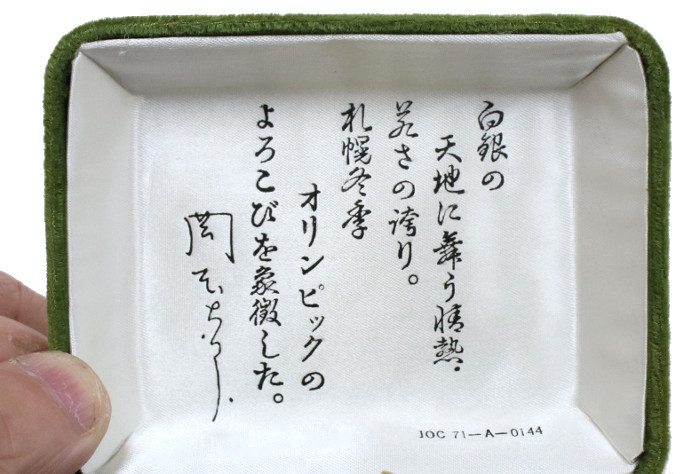 白銀の
天地に舞う情熱.
若さの誇り。
札幌冬季
オリンピックの
よろこびを象徴した。
岡本太郎
JOC 71-A-0144